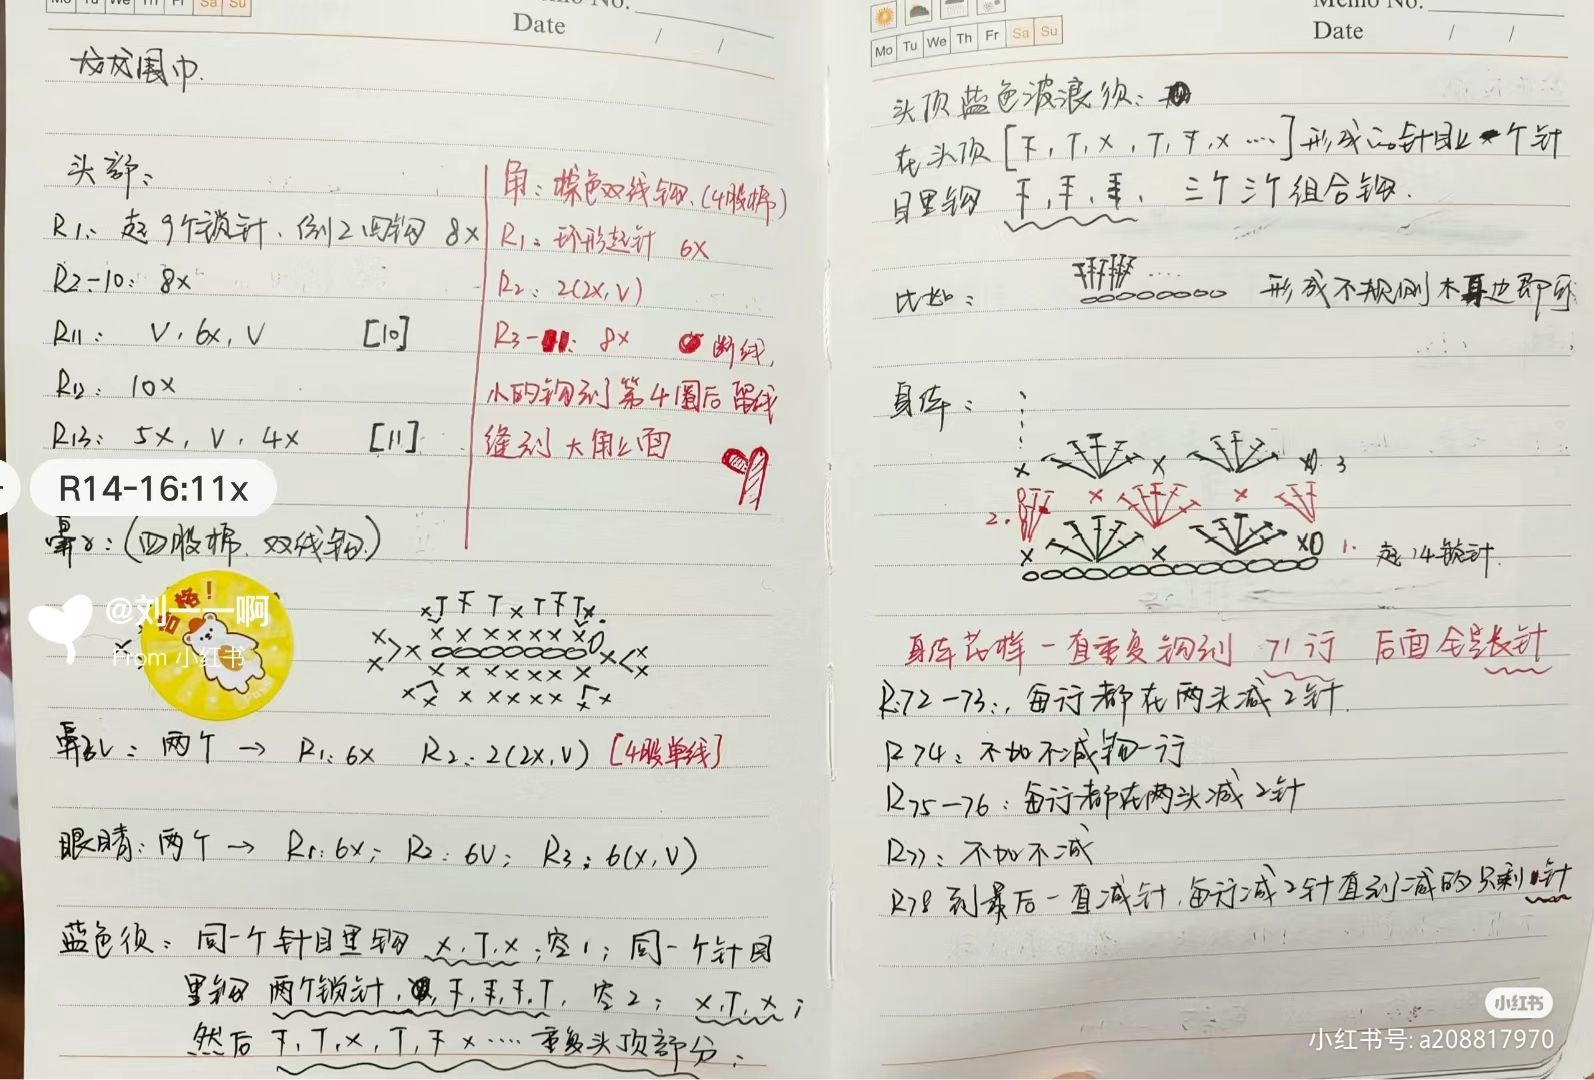 Mo Tu We Th Fr Sa Su
Memo No.
Date / /
龙龙围巾.
头部:
R1: 起9个锁针、倒2回钩 8x
R2-10: 8x
R11: V, 6x, V [10]
R12: 10x
R13: 5x, V, 4x [11]
R14-16:11x
角: 棕色双线钩.(4股棉)
R1: 环形起针 6x
R2: 2(2x, V)
R3- : 8x 断线,
小的钩到第4圈后留线
缝到大角上面
(四股棉.双线钩)
合格!
@刘一一啊
From 小红书
x T 干 T x T 干 T x
x x x x x x x x 0
x x x x x x
x x x x x x
: 两个 → R1: 6x R2: 2(2x, V) [4股单线]
眼睛: 两个 → R1: 6x; R2: 6V; R3: 6(x, V)
蓝色须: 同一个针目里钩 x, T, x ;空1; 同一个针目
里钩 两个锁针, 空2; x, T, x;
然后 干, T, x, T, 干 x ···· 重复头顶部分;
Mo Tu We Th Fr Sa Su
Memo No.
Date / /
头顶蓝色波浪须:
在头顶[干, T, x, T, 干, x ····]形成的针目上 个针
目里钩 三个三个组合钩.
比如: ···· 形成不规则木耳边即可
身体:
x x x0 3
2. x x
x x x0 1. 起14锁针.
身体花样一直重复钩到 71行 后面全是长针
R72-73:, 每行都在两头减2针.
R74: 不加不减钩一行
R75-76: 每行都在两头减2针
R77: 不加不减
R78到最后一直减针,每行减2针直到减的只剩1针
小红书
小红书号: a208817970